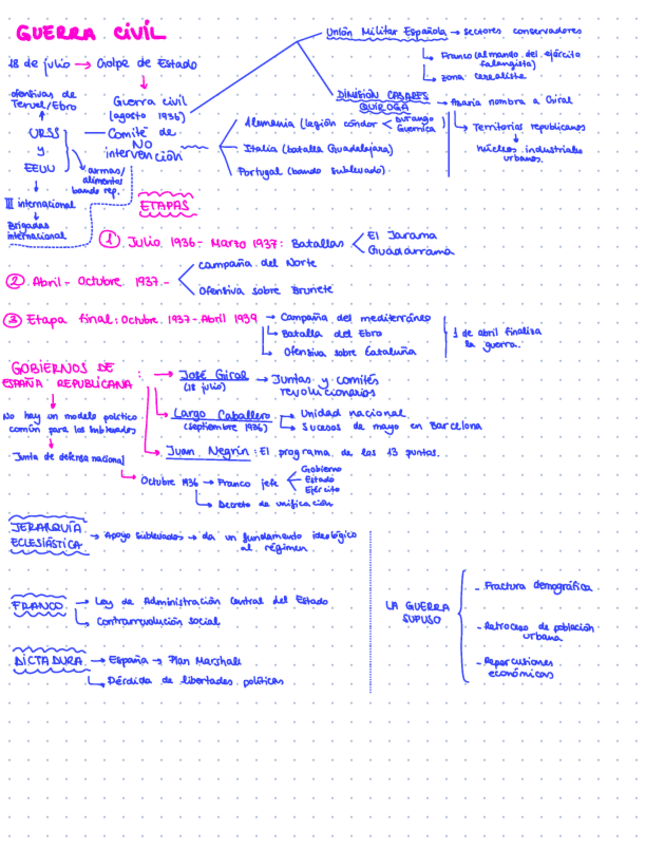 GUERRA CIVIL
18 de julio → Golpe de Estado
Unión Militar Española → sectores conservadores
Franco (al mando del ejército
falangista)
zona cerealista
DIMISIÓN CASARES
QUIROGA → Azaña nombra a Giral
Territorios republicanos
núcleos industriales
urbanos.
ofensivas de
Teruel/Ebro
Guerra civil
(agosto 1936)
URSS
y
EEUU
Comité de
NO
intervención
Alemania (legión cóndor < Durango
Guernica)
Italia (batalla Guadalajara)
Portugal (bando sublevado)
armas/
alimentos
bando rep.
III internacional
Brigadas
internacional
ETAPAS
① Julio 1936 - Marzo 1937: Batallas < El Jarama
Guadarrama
② Abril - Octubre 1937 - < campaña del Norte
Ofensiva sobre Brunete
③ Etapa final: Octubre 1937 - Abril 1939 → Campaña del mediterráneo
Batalla del Ebro
Ofensiva sobre Cataluña
1 de abril finaliza
la guerra.
GOBIERNOS DE
ESPAÑA REPUBLICANA :
→ José Giral → Juntas y comités
(18 julio) revolucionarios
Largo Caballero → Unidad nacional
(septiembre 1936) → Sucesos de mayo en Barcelona
Juan Negrín : El programa de los 13 puntos.
No hay un modelo político
común para los sublevados
Junta de defensa nacional
Octubre 1936 → Franco jefe < Gobierno
Estado
Ejército
Decreto de unificación
JERARQUÍA
ECLESIÁSTICA → Apoyo sublevados → da un fundamento ideológico
al régimen
FRANCO → Ley de Administración Central del Estado
Contrarrevolución social
DICTADURA → España → Plan Marshall
Pérdida de libertades políticas
LA GUERRA
SUPUSO
- Fractura demográfica
- Retroceso de población
urbana
- Repercusiones
económicas